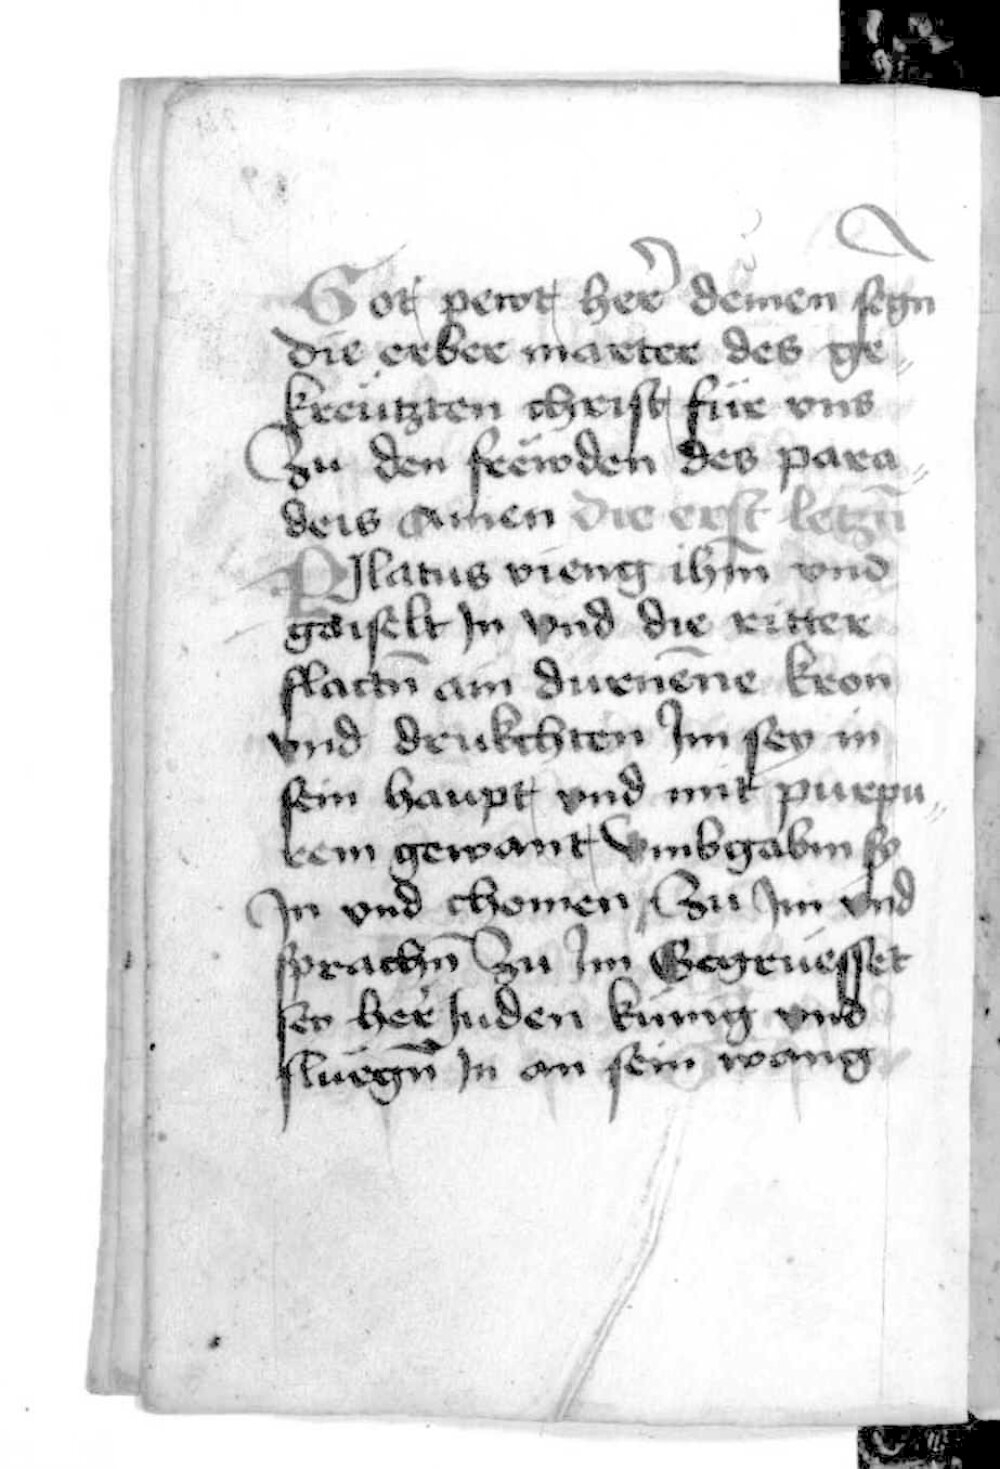 Got pewt her deinen segn
die erber marter des ge„
kreützten christ für vns
Zu den frewden des para„
deis Amen die erst letzn̄
PJlatus vieng ihm̄ vnd
gaiselt Jn vnd die ritter
flactn̄ ain durnēne kron
vnd drukchten Jm sey in
sein haupt vnd mit purpu„
rem gewant Vmbgabm sy
Jn vnd chomen Zu Jm vnd
sprachn̄ Zu Jm Gegruesset
sey her Juden künig vnd
sluegn̄ Jn an sein wang